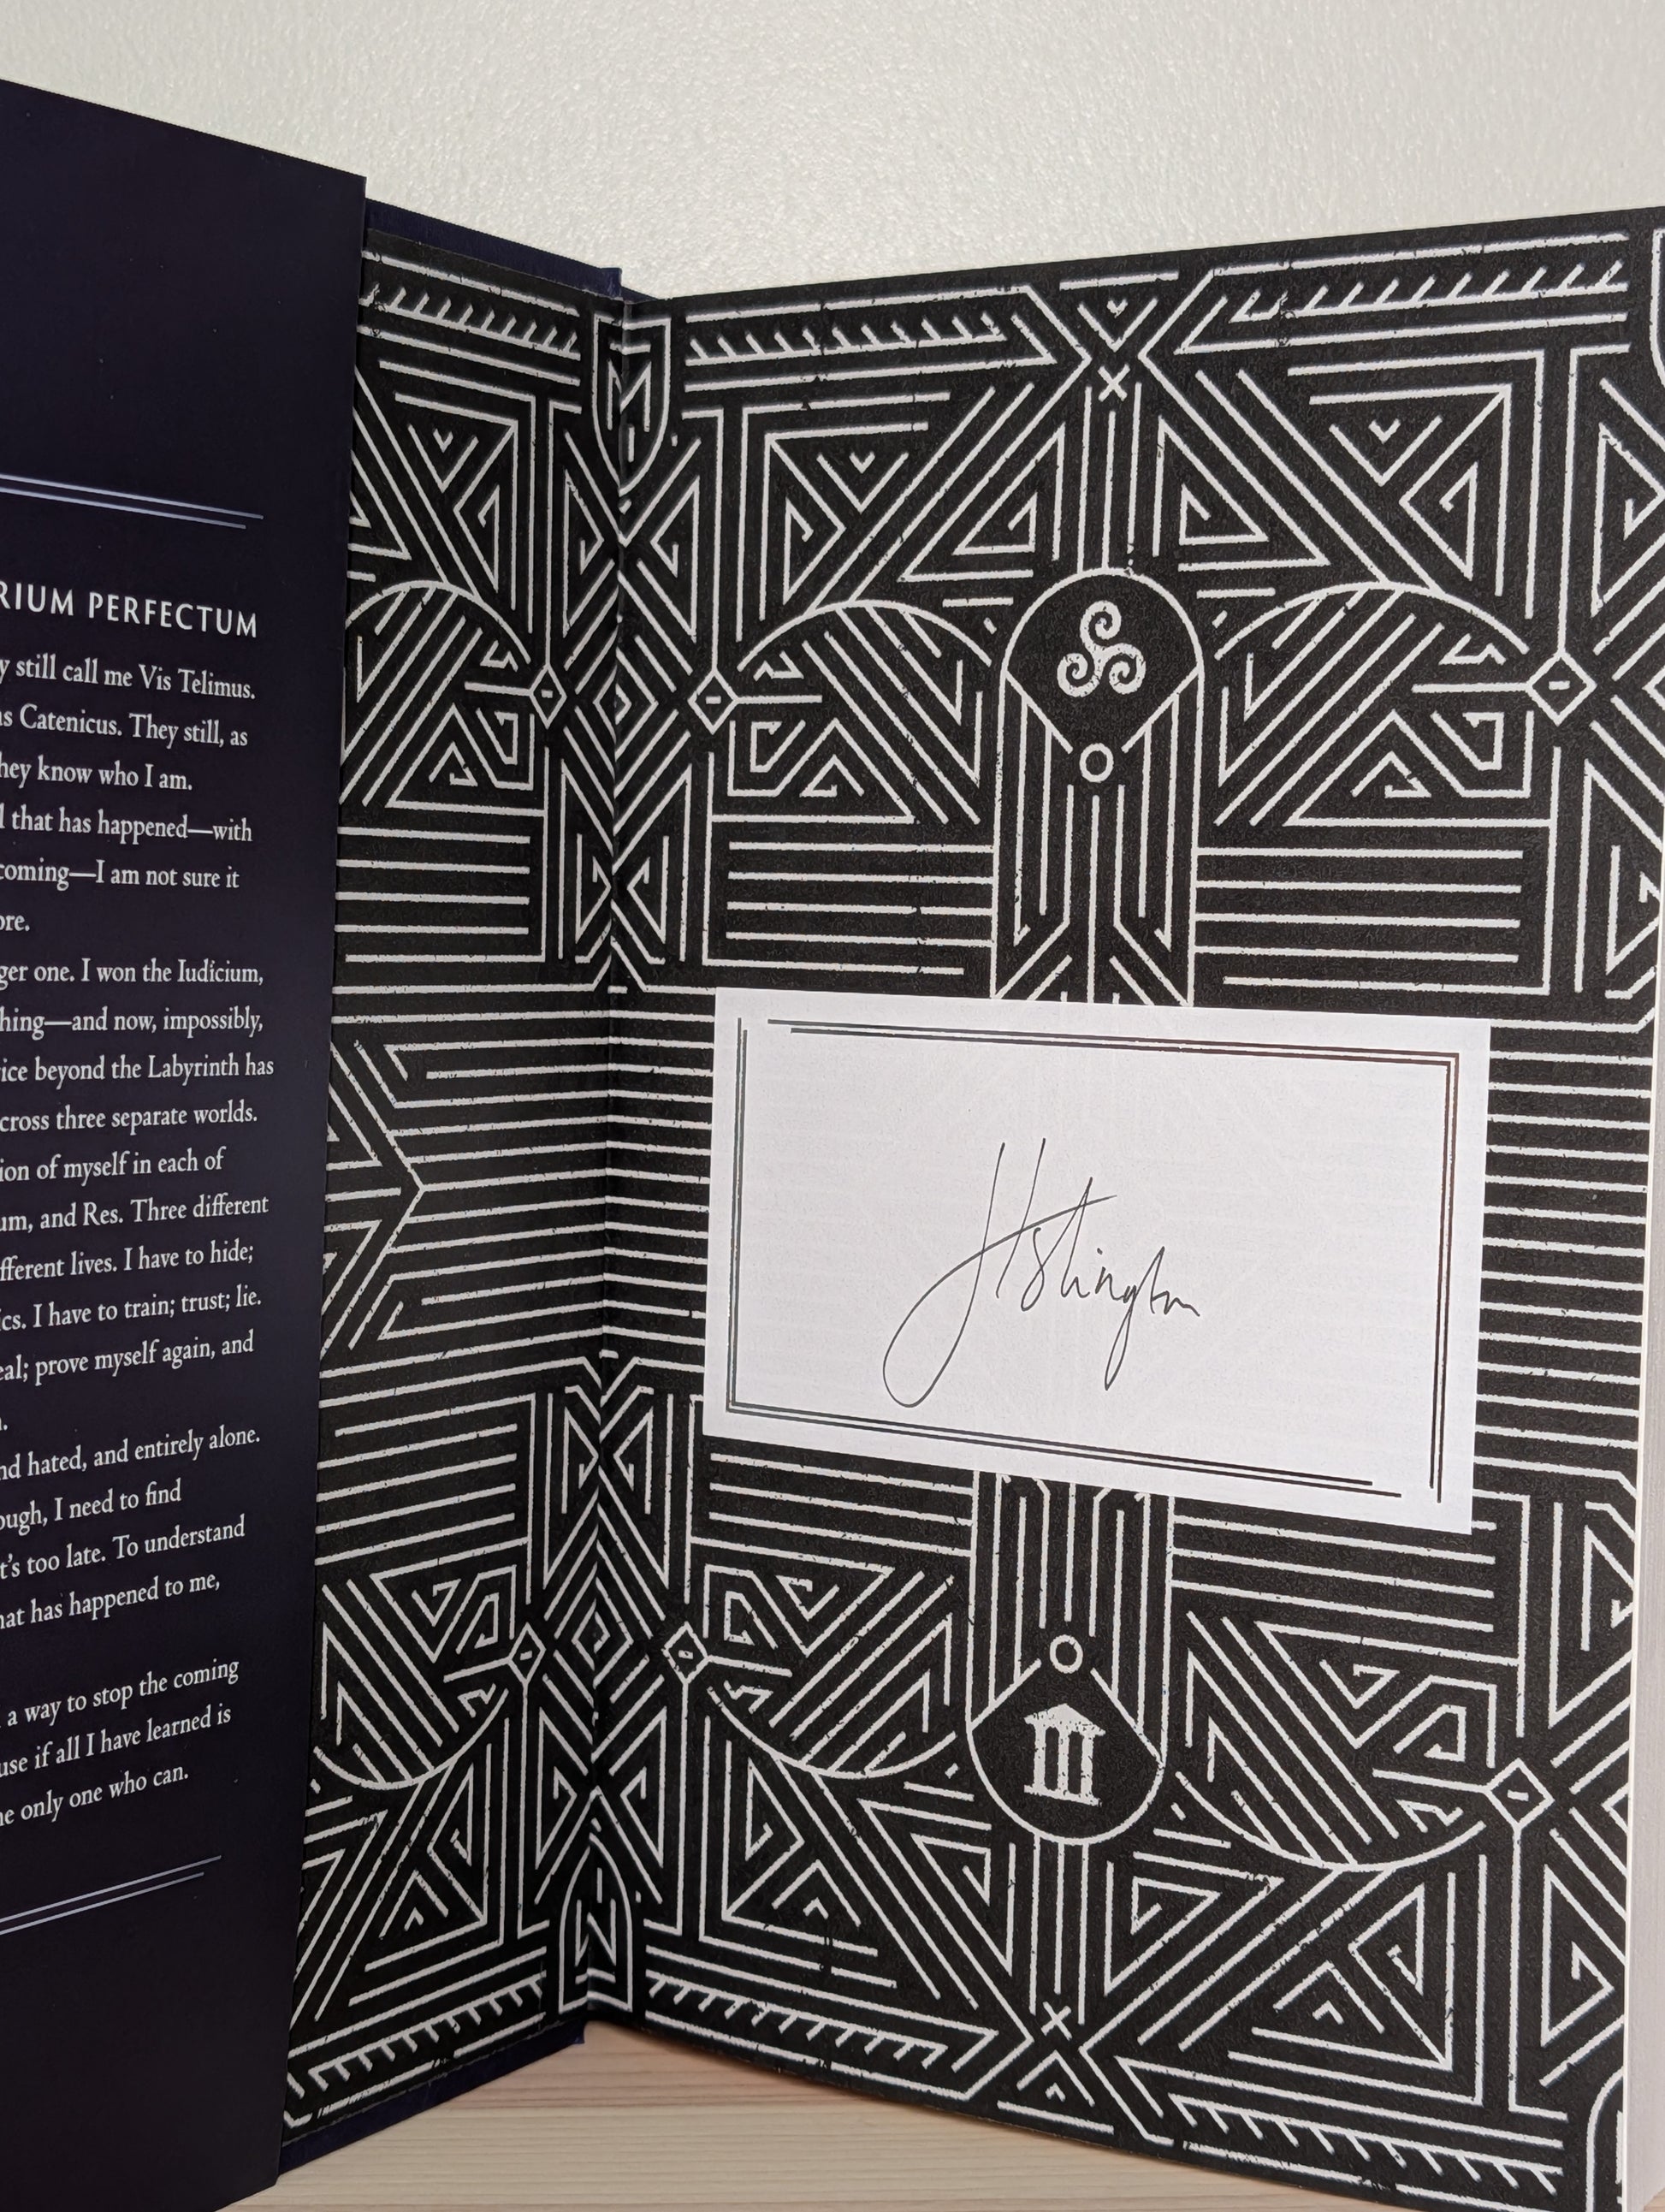 RIUM PERFECTUM
y still call me Vis Telimus.
s Catenicus. They still, as
hey know who I am.
l that has happened—with
coming—I am not sure it
ore.
ger one. I won the Iudicium,
hing—and now, impossibly,
ice beyond the Labyrinth has
cross three separate worlds.
ion of myself in each of
um, and Res. Three different
fferent lives. I have to hide;
cs. I have to train; trust; lie.
eal; prove myself again, and
.
nd hated, and entirely alone.
ough, I need to find
t's too late. To understand
hat has happened to me,
a way to stop the coming
use if all I have learned is
e only one who can.